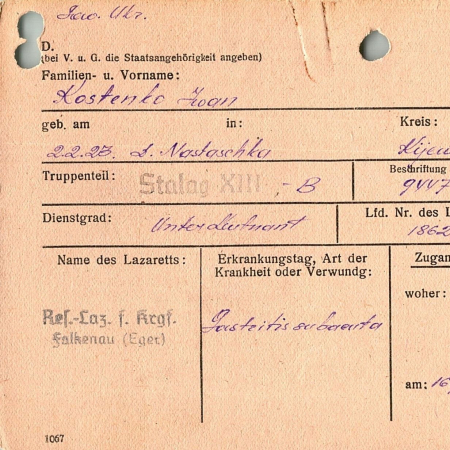 Ukr.
D.
(bei V. u. G. die Staatsangehörigkeit angeben)
Familien- u. Vorname:
Kostenko Iwan
geb. am in: Kreis:
2.2.23. Nastaschka Kijew
Truppenteil: Stalag XIII - B Beschriftung
9447
Dienstgrad: Unterleutnant Lfd. Nr. des L
1862
Name des Lazaretts: Erkrankungstag, Art der Krankheit oder Verwundg: Zugan
woher:
Res.-Laz. f. Krgf.
Falkenau (Eger)
Gastritis subacuta
am: 16
1067